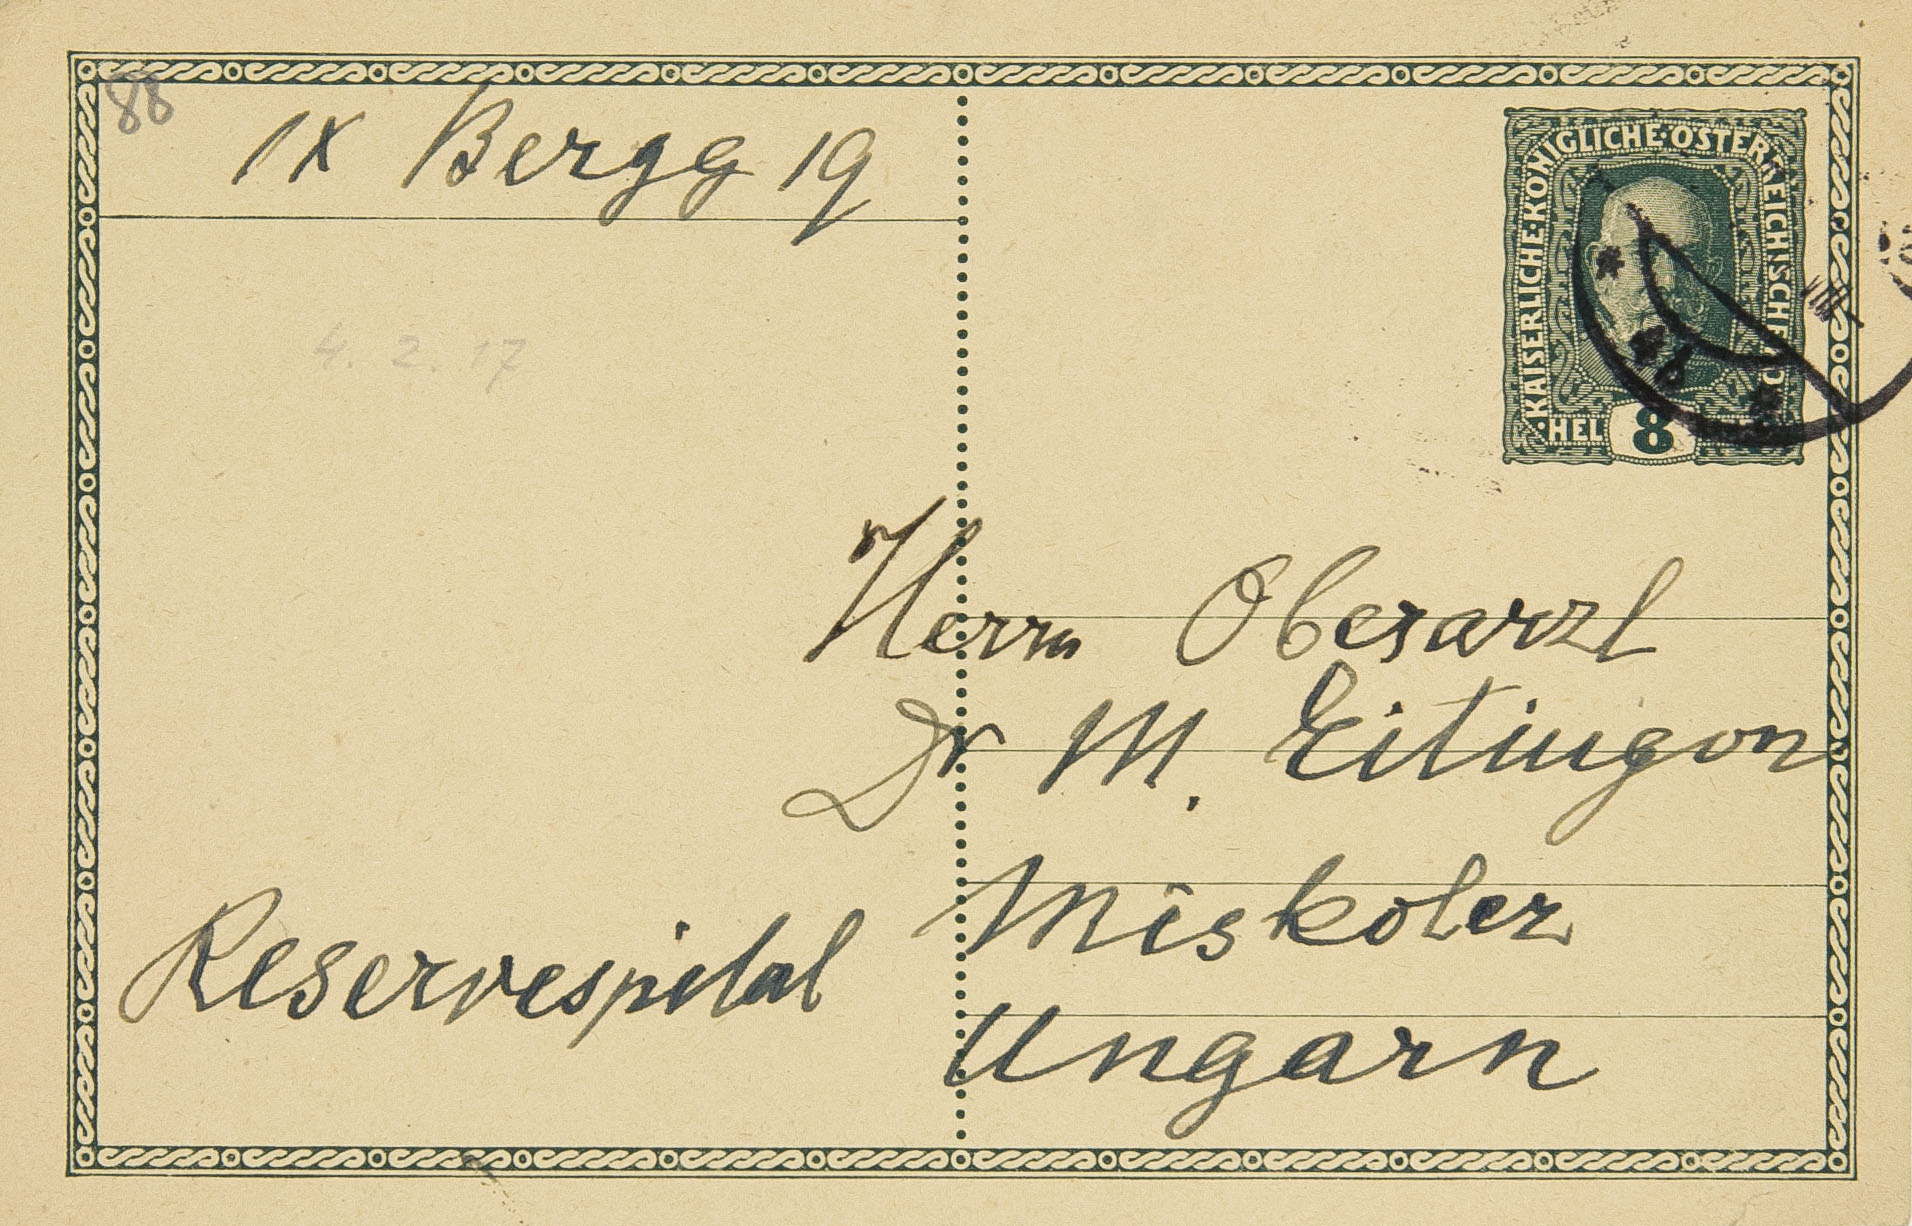 88
IX Bergg 19
4. 2. 17
KAISERLICHE·KÖNIGLICHE·ÖSTERREICHISCHE
HEL 8
4b
VIII
Herrn Oberarzt
Dr M. Eitingon
Miskolcz
Reservespital
Ungarn